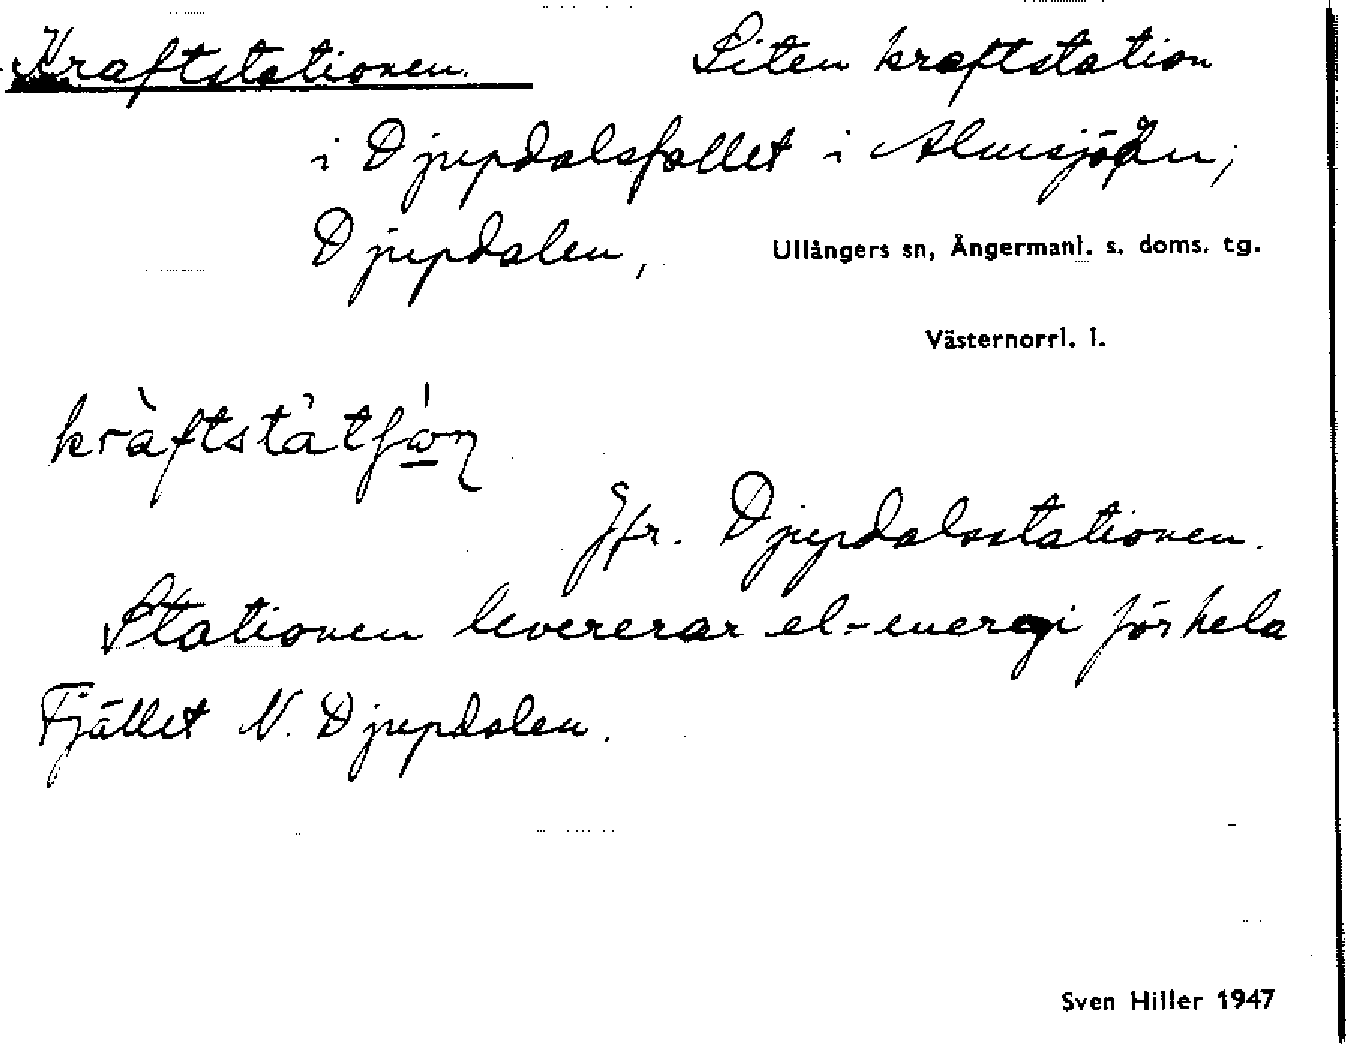 Kraftstationen. Liten kraftstation
i Djupdalsfallet i Almsjöån;
Djupdalen, Ullångers sn, Ångermanl. s. doms. tg.
Västernorrl. l.
Jfr. Djupdalsstationen.
Stationen levererar el-energi för hela
Fjället N. Djupdalen.
Sven Hiller 1947